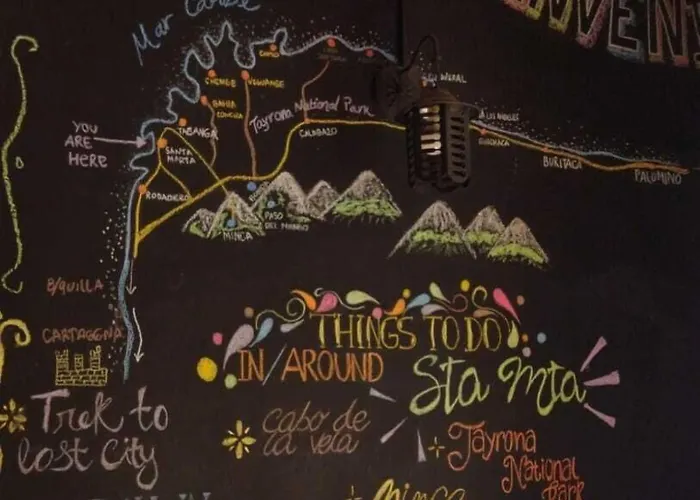 Mar Caribe
VEN
CHENGE
NEGUANGE
BAHIA
CONCHA
Tayrona National Park
TAGANGA
CALABAZO
LOS ANGELES
GUACHACA
BURITACA
PALOMINO
YOU
ARE
HERE
SANTA
MARTA
RODADERO
PASO
DEL MANGO
MINCA
B/QUILLA
CARTAGENA
THINGS TO DO
IN/AROUND
Sta Mta
Trek to
lost City
cabo de
la vela
Tayrona
National
Park
Minca